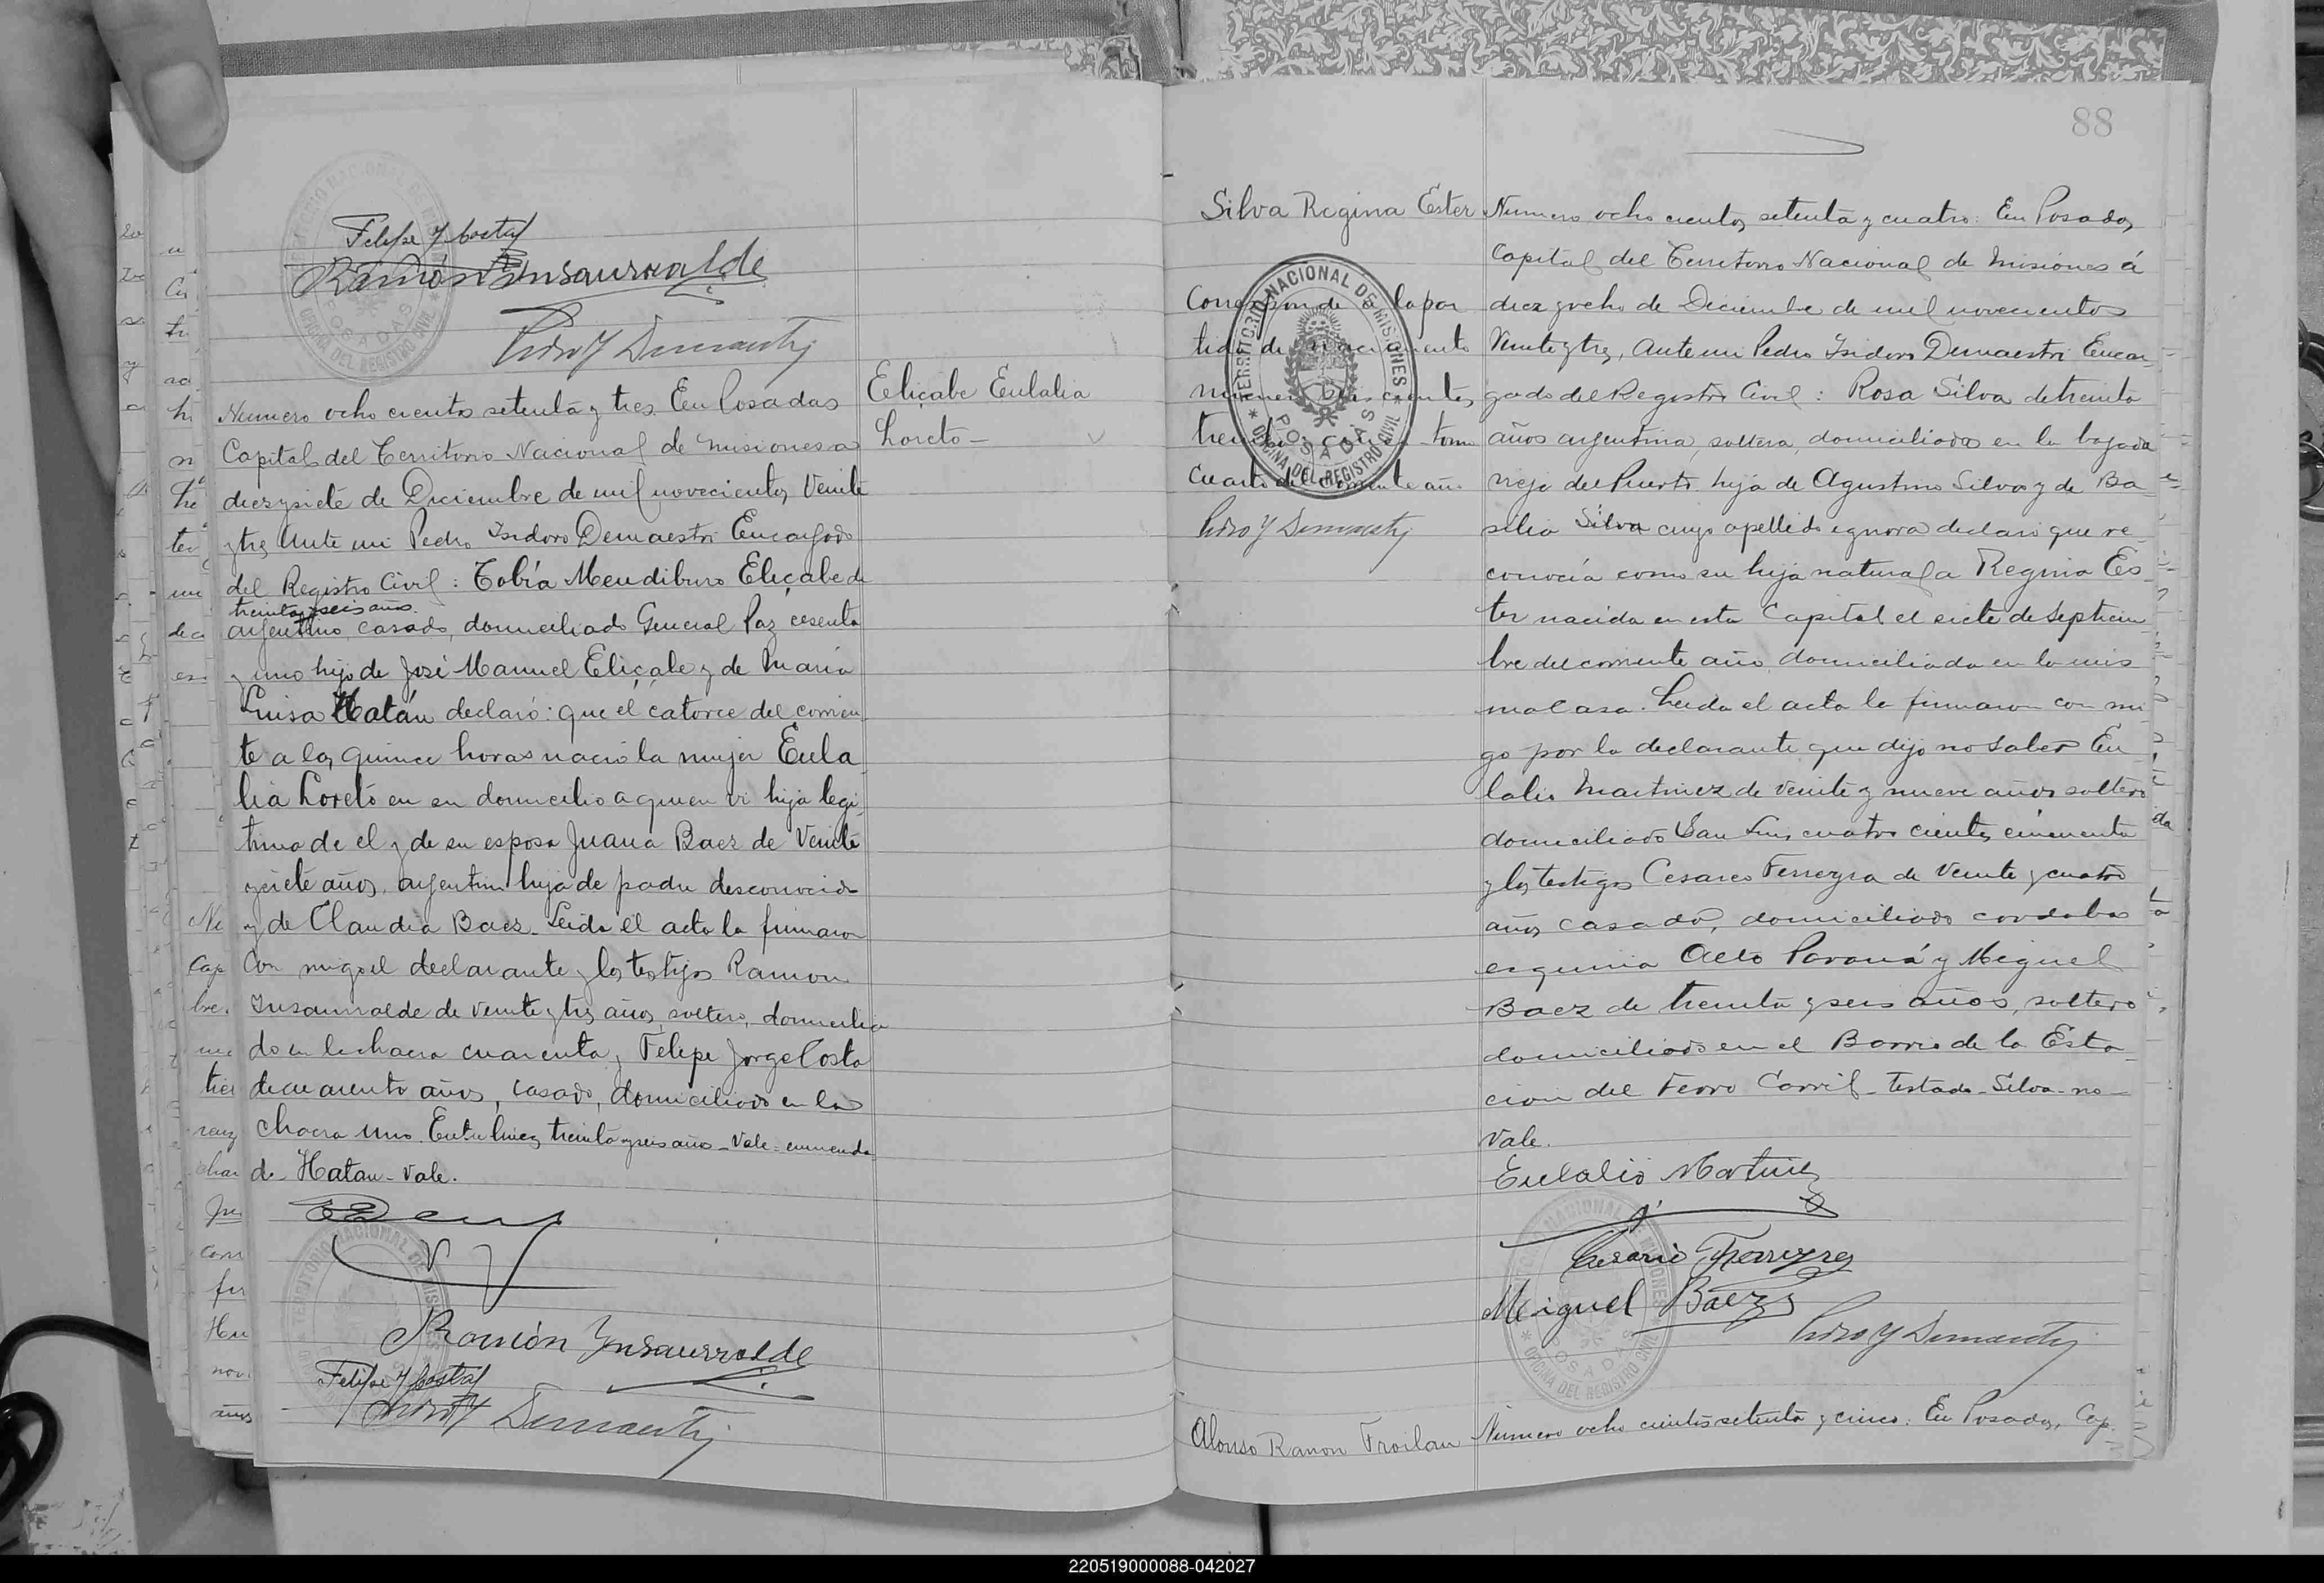 Felipe J Costa
Ramón Insaurralde
Pedro Y Demaestri
Elicabe Eulalia
Loreto -
Numero ocho cientos setenta y tres. En Posadas
Capital del Territorio Nacional de Misiones a
diezysiete de Diciembre de mil novecientos Veinte
ytres Ante mi Pedro Isidoro Demaestri Encargado
del Registro Civil: Tobía Mendiburo Eliçabe de
treintayseis años.
argentino, casado, domiciliado General Paz sesenta
y uno hijo de José Manuel Eliçabe y de María
Luisa Hatán declaró: que el catorce del corrien
te a las quince horas nació la mujer Eula
lia Loreto en su domicilio a quien vi hija legi
tima de el y de su esposa Juana Baez de Veinte
ysiete años, argentina hija de padre desconocido
y de Claudia Baez. Leida el acta la firmaron
con migo el declarante y los testigos Ramon
Insaurralde de veinte y tres años, soltero, domicilia
do en la chacra cuarenta y Felipe Jorge Costa
de cuarenta años, casado, domiciliado en la
chacra uno. Entre lineas treinta y seis años - Vale - enmenda
do - Hatan - Vale.
Ramón Ynsaurralde
Felipe J Costa
Pedro Y Demaestri
88
Silva Regina Ester
Corresponde a la par
tida de nacimiento
numero seis cientos
treinta y cinco tomo
Cuarto del corriente año
Pedro Y Demaestri
TERRITORIO NACIONAL DE MISIONES
POSADAS
OFICINA DEL REGISTRO CIVIL
Numero ocho cientos setenta y cuatro: En Posadas,
Capital del Territorio Nacional de Misiones á
diez yocho de Diciembre de mil novecientos
Veinteytres, Ante mi Pedro Isidoro Demaestri Encar
gado del Registro Civil: Rosa Silva de treinta
años argentina, soltera, domiciliada en la bajada
vieja del Puerto hija de Agustino Silva y de Ba
silia Silva cuyo apellido ignora declaró que re
conocía como su hija natural a Regina Es
ter nacida en esta Capital el siete de Septiem
bre del corriente año, domiciliada en la mis
ma casa. Leida el acta la firmaron con mi
go por la declarante que dijo no saber Eu
lalio Martinez de veinte y nueve años soltero
domiciliado San Luis cuatro cientos cincuenta
y los testigos Cesareo Ferreyra de Veinte y cuatro
años casado, domiciliado cordoba
esquina Alto Paraná y Miguel
Baez de treinta y seis años, soltero
domiciliado en el Barrio de la Esta
cion del Ferro Carril - Testado - Silva - no -
Vale.
Eulalio Martinez
Cesario Ferreyra
Miguel Báez
Pedro Y Demaestri
Alonso Ramon Froilan
Numero ocho cientos setenta y cinco: En Posadas, Cap
220519000088-042027